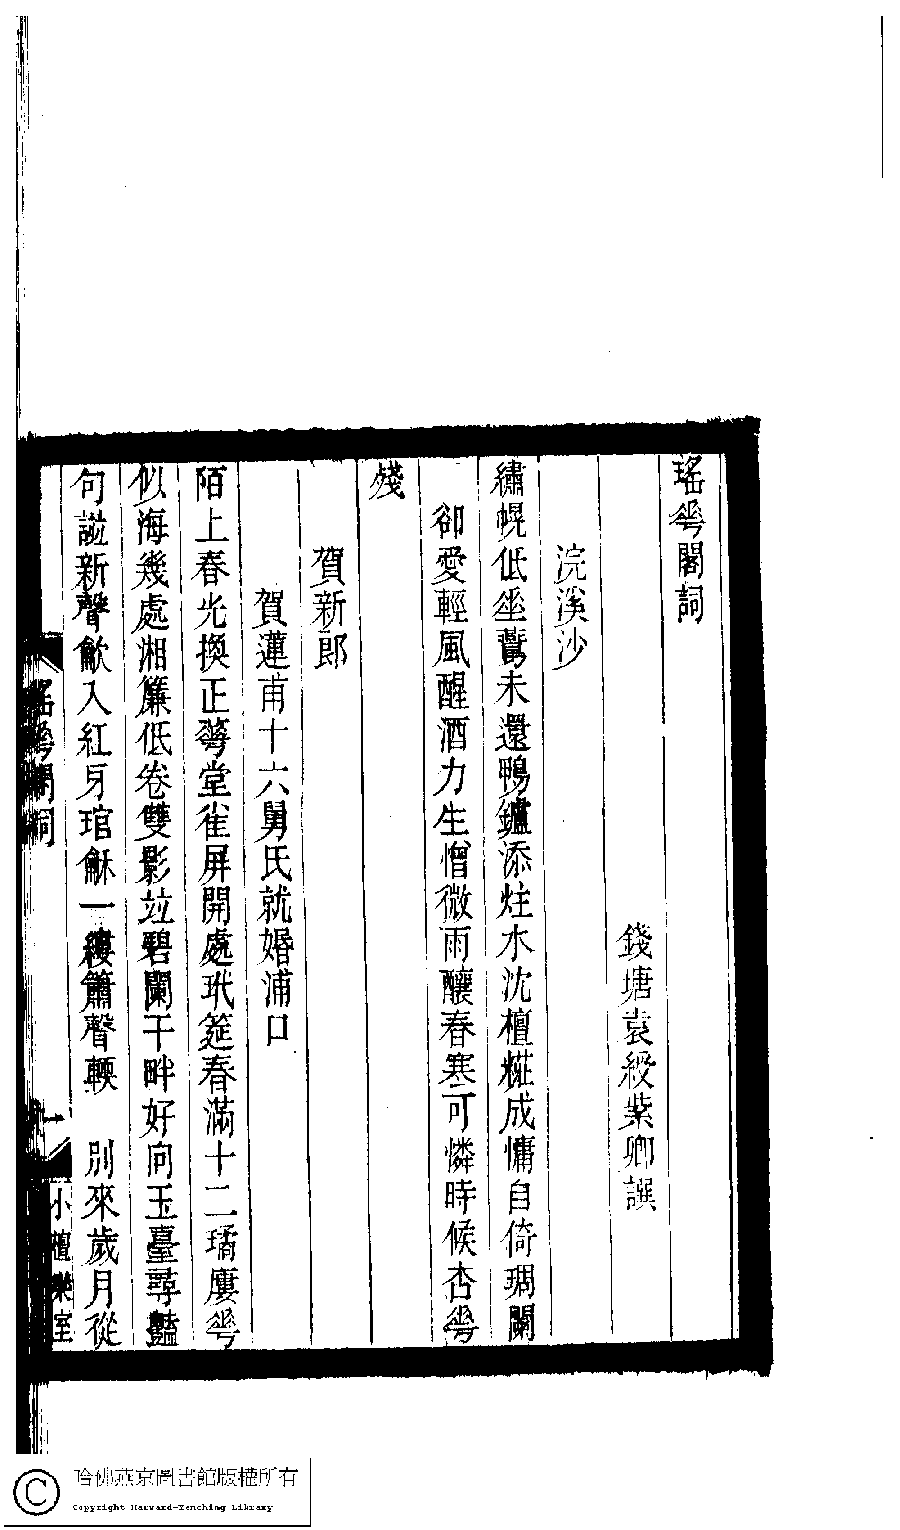 瑤華閣詞
錢塘袁綬紫卿譔
浣溪沙
繡幌低垂鷰未還鴨鑪添炷水沈檀糚成慵自倚琱闌
卻愛輕風醒酒力生憎微雨釀春寒可憐時候杏華
殘
賀新郎
賀蓮甫十六舅氏就婚浦口
陌上春光換正蕐堂雀屏開處玳筵春滿十二璚廔華
似海幾處湘簾低卷雙影竝碧闌干畔好向玉臺尋豔
句謚新聲龡入紅牙琯龢一縷簫聲輭 別來歲月從
瑤華閣詞
一
小檀欒室
哈佛燕京圖書館版權所有
Copyright Harvard-Yenching Library